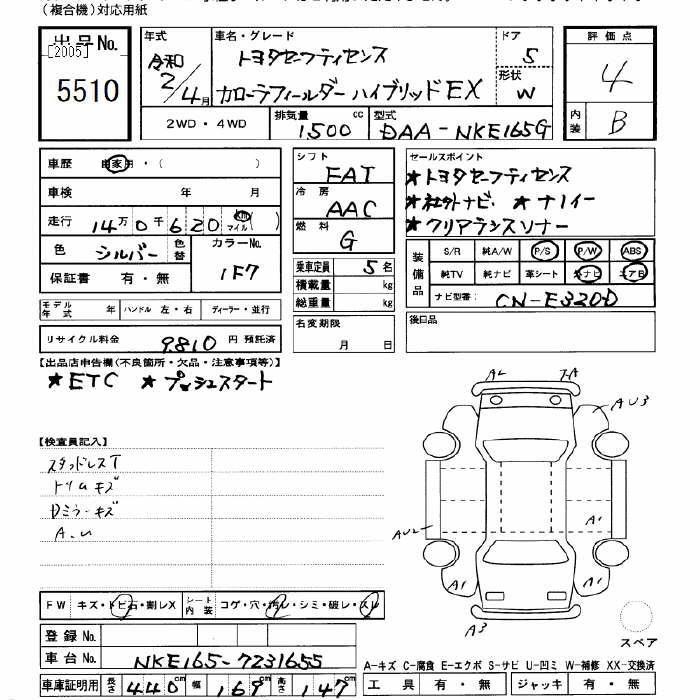 （複合機）対応用紙
出品No.
[2005]
5510
年式
令和
2/4月
車名・グレード
トヨタセーフティセンス
カローラフィールダー ハイブリッドEX
ドア
5
形状
W
評価点
4
内装
B
2WD・4WD
排気量
1500 cc
型式
DAA-NKE165G
車歴
自家用・（　　）
車検　年　月
走行 14万0千620 km マイル（　）
色 シルバー 色替
カラーNo.
1F7
保証書 有・無
モデル年式 年 ハンドル 左・右 ディーラー・並行
リサイクル料金 9,810 円 預託済
シフト
FAT
冷房
AAC
燃料
G
乗車定員 5名
積載量 kg
総重量 kg
名変期限
月 日
セールスポイント
★トヨタセーフティセンス
★社外ナビ ★ナノイー
★クリアランスソナー
装備品
S/R 純A/W P/S P/W ABS
純TV 純ナビ 革シート 外ナビ エアB
ナビ型番 CN-E320D
後日品
【出品店申告欄(不良箇所・欠品・注意事項等)】
★ETC ★プッシュスタート
【検査員記入】
スタッドレスT
トリムキズ
Dミラーキズ
A.U
AU3
A1
A1
A1
A3
FW キズ・トビ石・割レX
シート内装 コゲ・穴・汚レ・シミ・破レ・スレ
登録No.
車台No. NKE165-7231655
車庫証明用 長さ 440cm 幅 169cm 高さ 147cm
スペア
A-キズ C-腐食 E-エクボ S-サビ U-凹ミ W-補修 XX-交換済
工具 有・無 ジャッキ 有・無